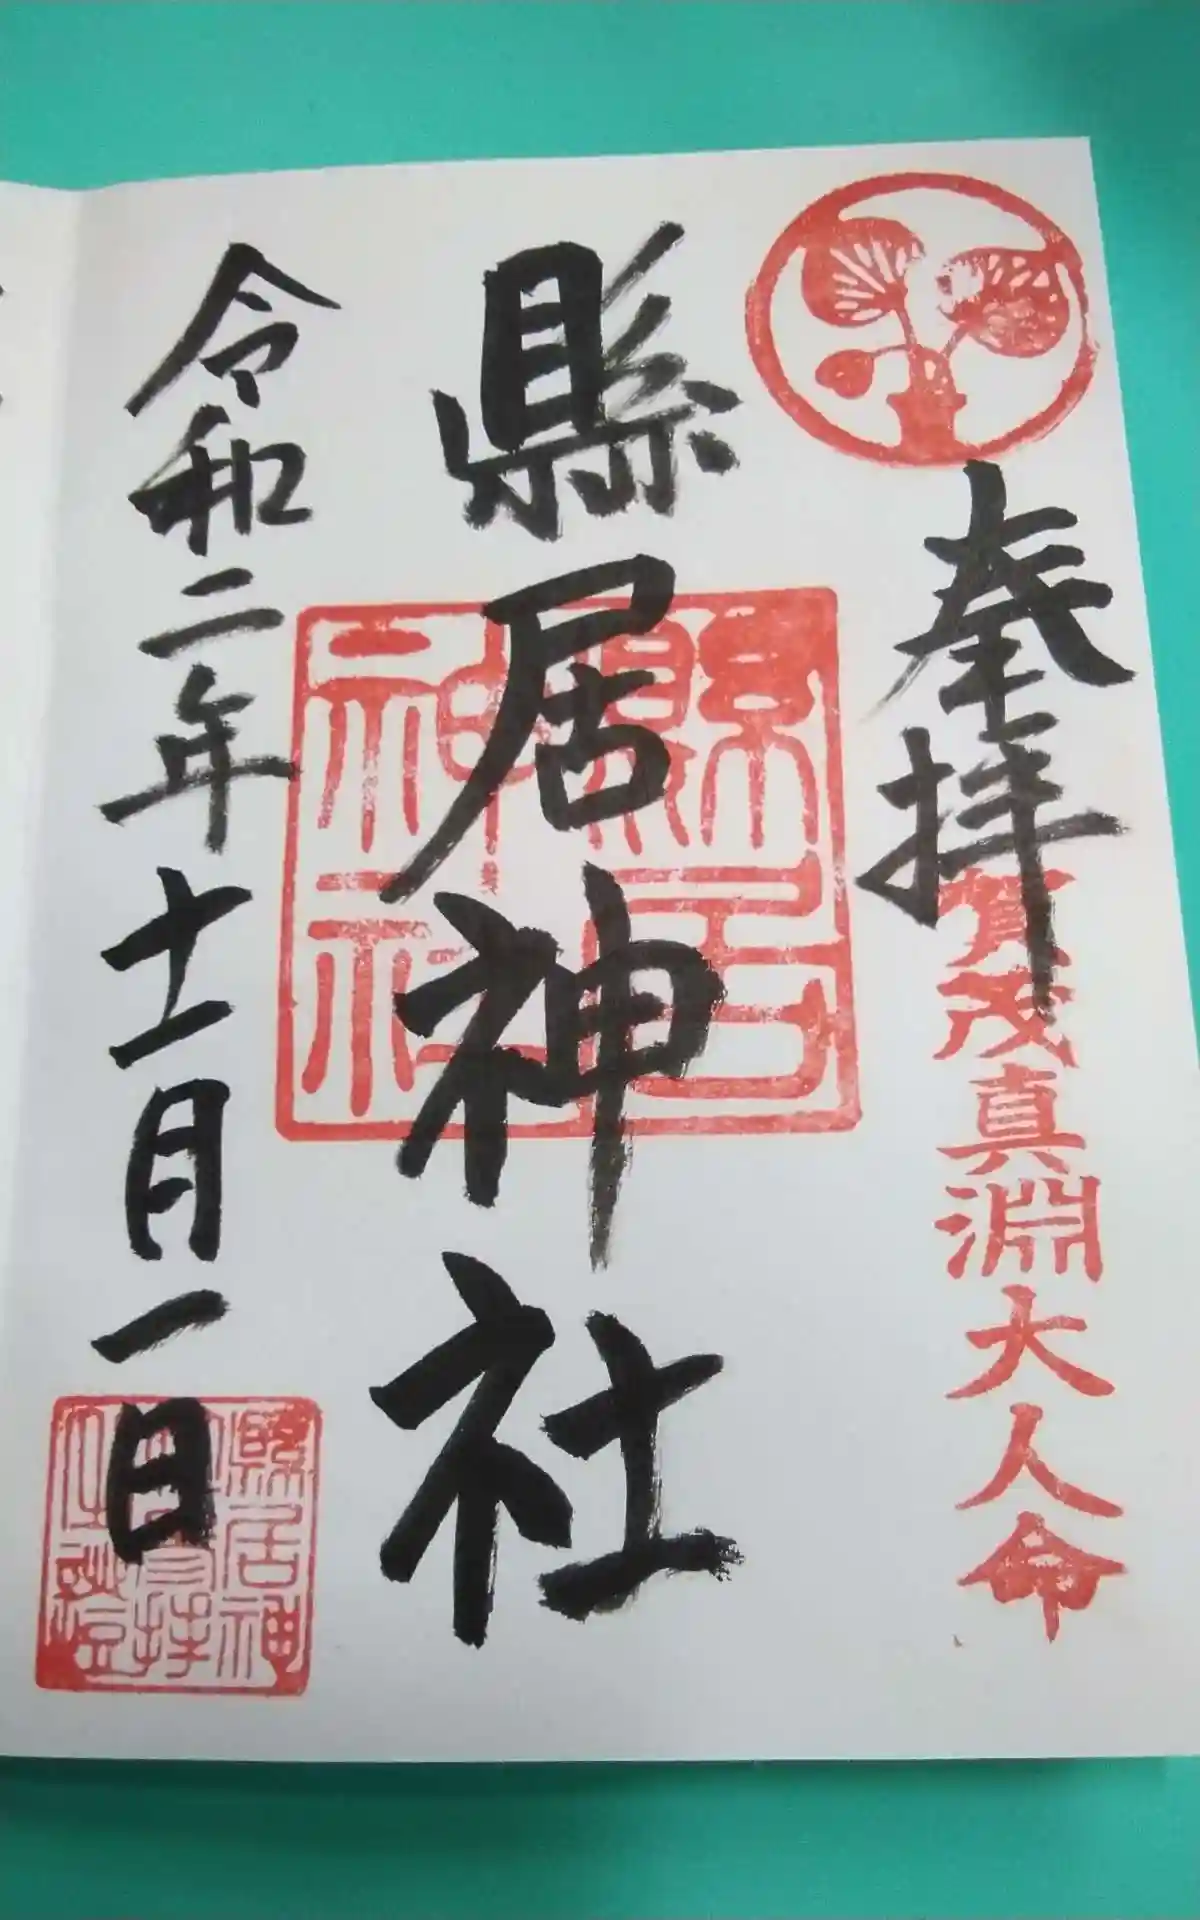 奉拝
賀茂真淵大人命
縣居神社
縣居神社
令和二年十一月一日
縣居神
社参拝
之證